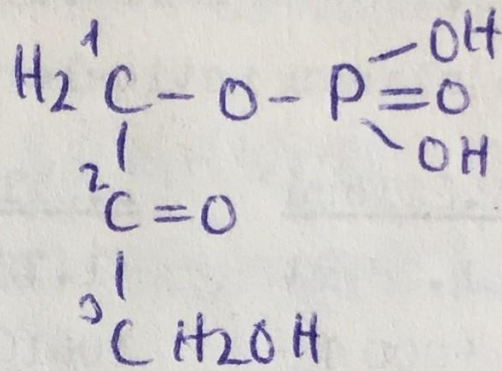 OH
H2 1C - O - P = O
OH
2C = O
3C H2OH